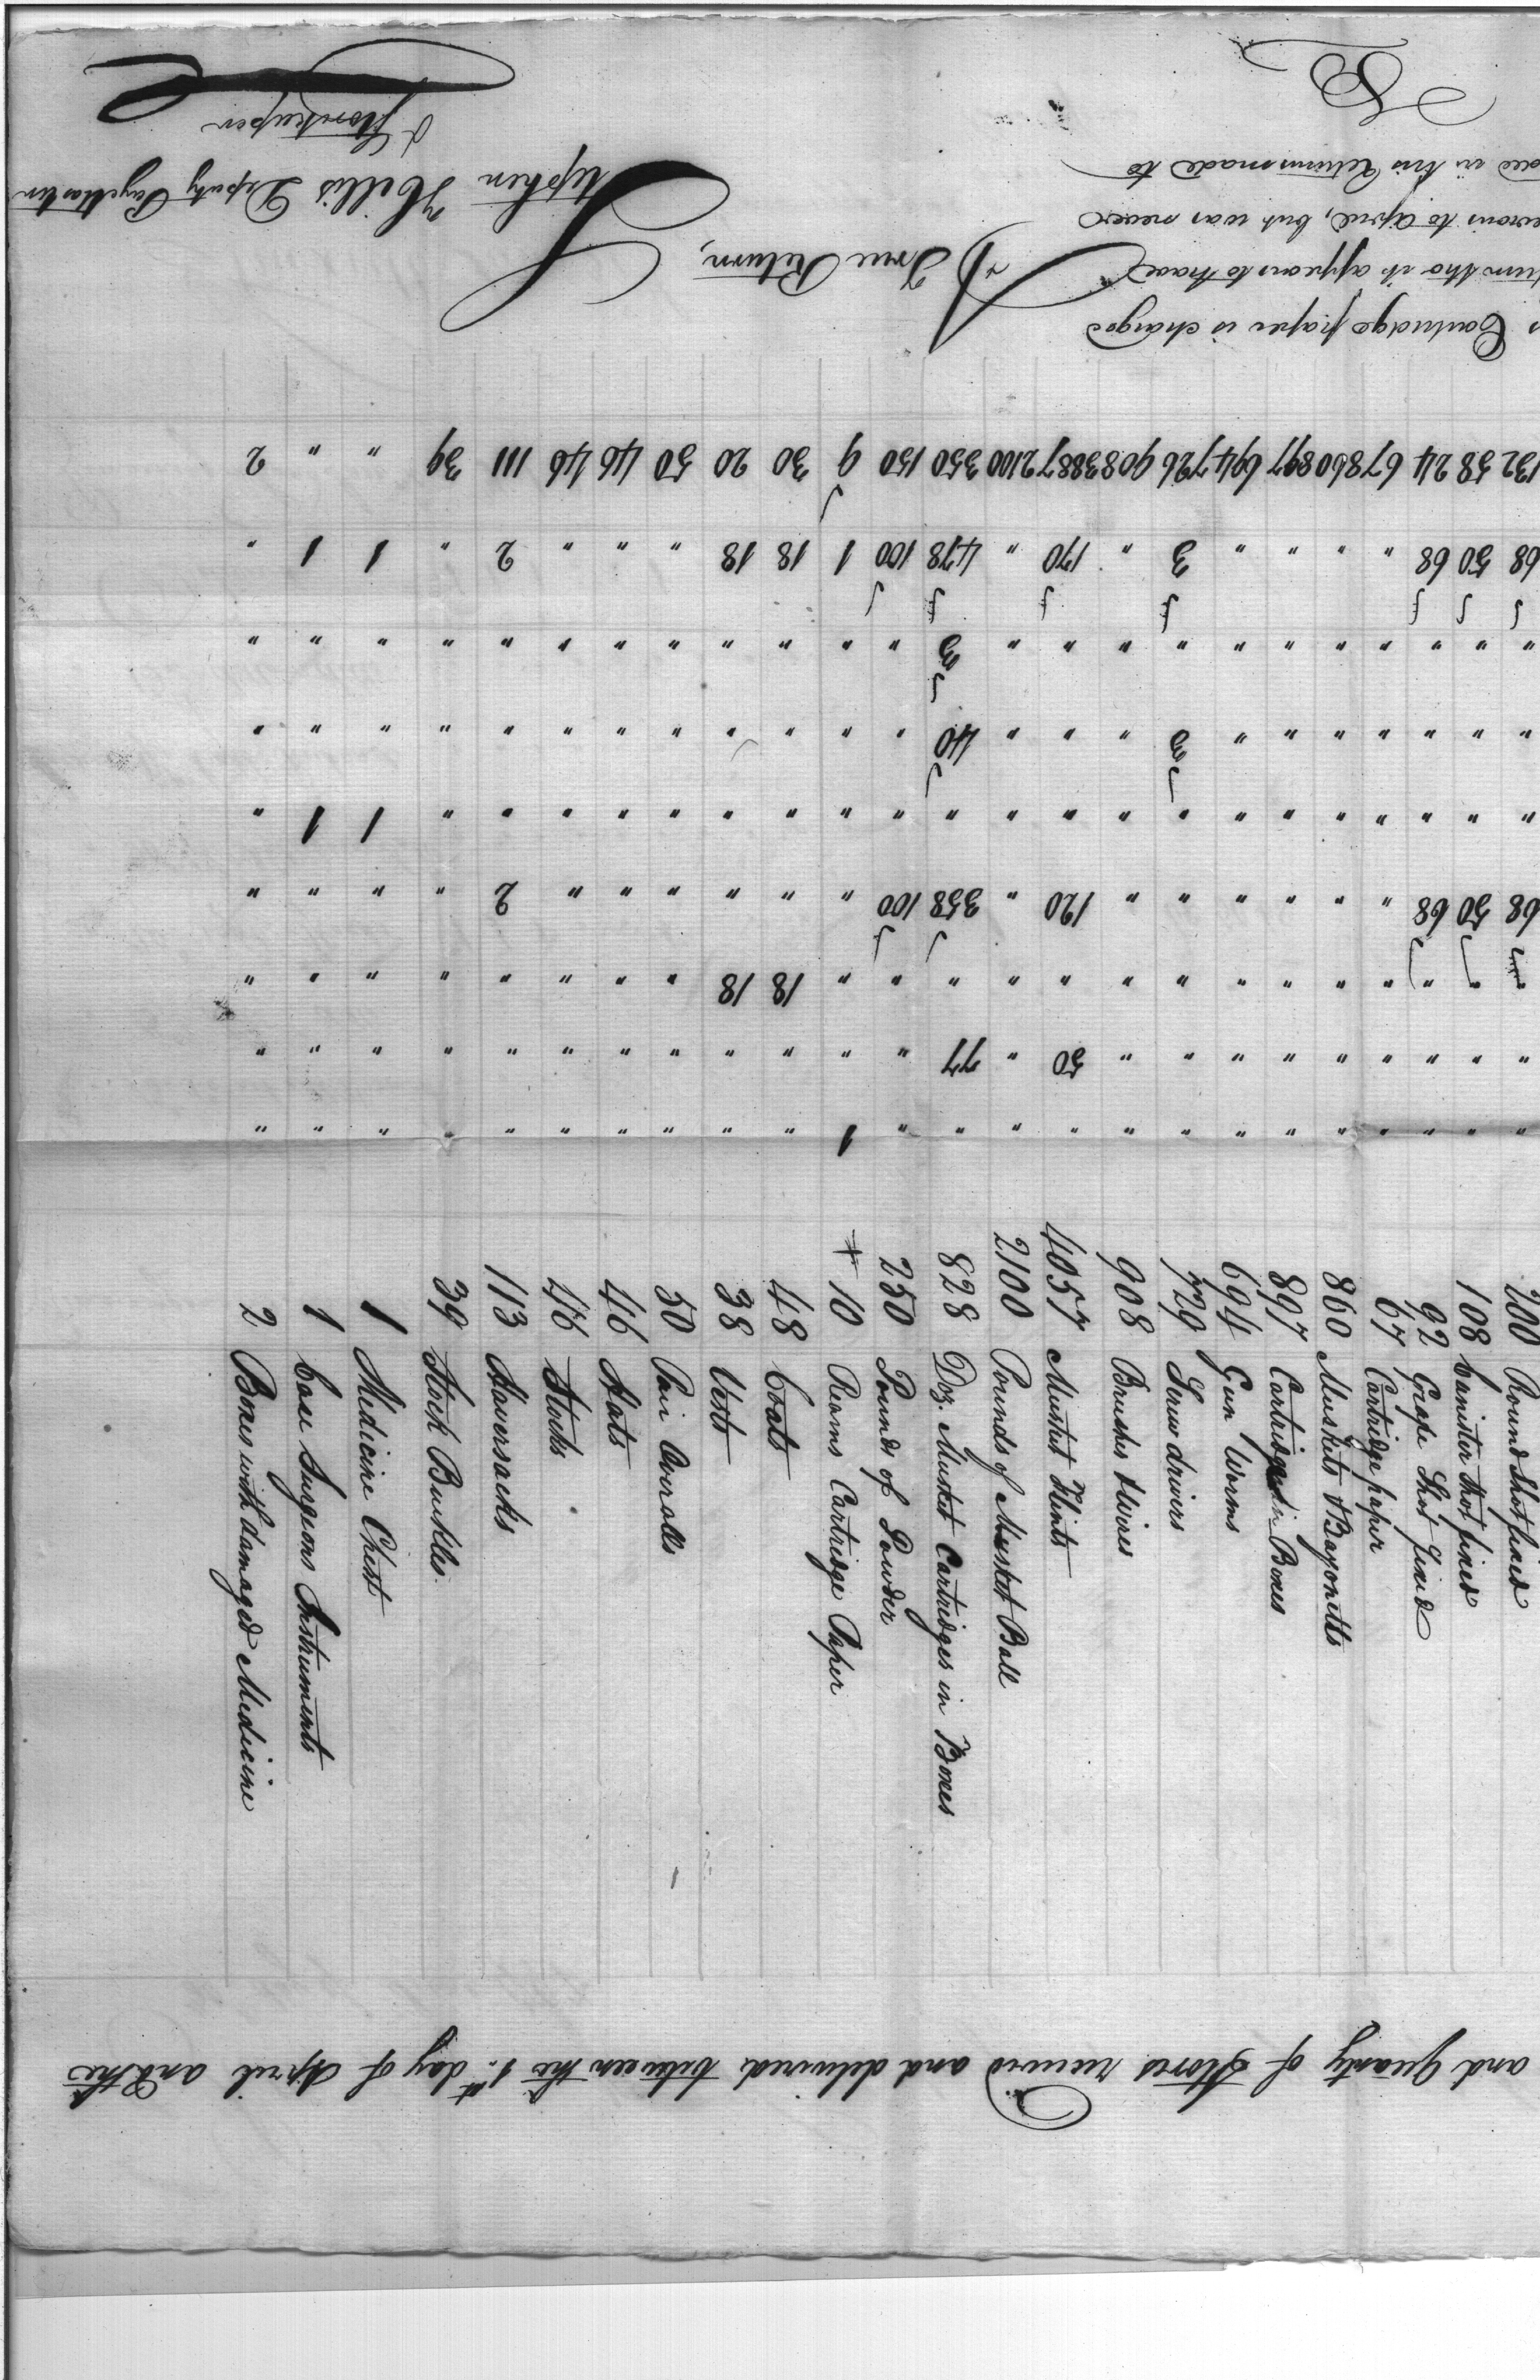 and Quanty of Stores received and delivered between the 1st day of April and the
200 Round Shot fixed
108 Canister Shot fixed
92 Grape Shot fixed
67 Cartridge paper
860 Muskets & Bayonetts
897 Cartridge Boxes
694 Gun Worms
729 Screw drivers
908 Brushes & Wires
4057 Musket Flints
2100 Pounds of Musket Ball
828 Doz. Musket Cartridges in Boxes
250 Pounds of Powder
+ 10 Reams Cartridge Paper
48 Coats
38 Vests
50 Pair Overalls
46 Hats
46 Stocks
113 Haversacks
39 Stock Buckles
1 Medicine Chest
1 Case Surgeons Instruments
2 Boxes with damaged Medicine
" " " " " " " " " " " " " 1 " " " " " " " " " "
" " " " " " " " " 50 " 77 " " " " " " " " " " " "
" " " " " " " " " " " " " " 18 18 " " " " " " " "
68 50 68 " " " " " " 120 " 358 100 " " " " " " 2 " " " "
" " " " " " " " " " " " " " " " " " " " " 1 1 "
" " " " " " " 3 " " " 40 " " " " " " " " " " " "
" " " " " " " " " " " 3 " " " " " " " " " " " "
68 50 68 " " " " 3 " 170 " 478 100 1 18 18 " " " 2 " 1 1 "
132 58 24 67 860 897 694 726 908 3887 2100 350 150 9 30 20 50 46 46 111 39 " " 2
Cartridge paper is charged
tho it appears to have
to April, but was never
in his Returns made to
A True Return,
Stephen Hillis Deputy Paymaster
& Storekeeper